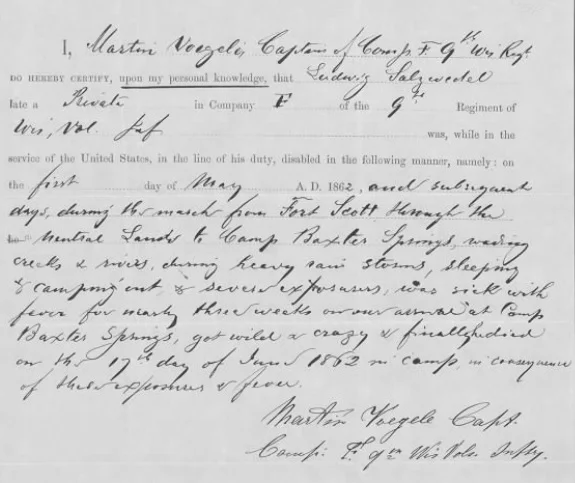 I, Martin Voegele Captain of Comp. F. 9th Wis Regt.
DO HEREBY CERTIFY, upon my personal knowledge, that Ludwig Salzwedel
late a Private in Company F of the 9th Regiment of
Wis, Vol. Inf was, while in the
service of the United States, in the line of his duty, disabled in the following manner, namely: on
the first day of May A. D. 1862, and subsequent
days, during the march from Fort Scott through the
Neutral Lands to Camp Baxter Springs, wading
creeks & rivers, during heavy rain storms, sleeping
& camping out, & severe exposures, was sick with
fever for nearly three weeks on our arrival at Camp
Baxter Springs, got wild & crazy & finally died
on the 17th day of June 1862 in camp, in consequence
of these exposures & fever.
Martin Voegele Capt.
Comp. F. 9th Wis Vols. Infty.